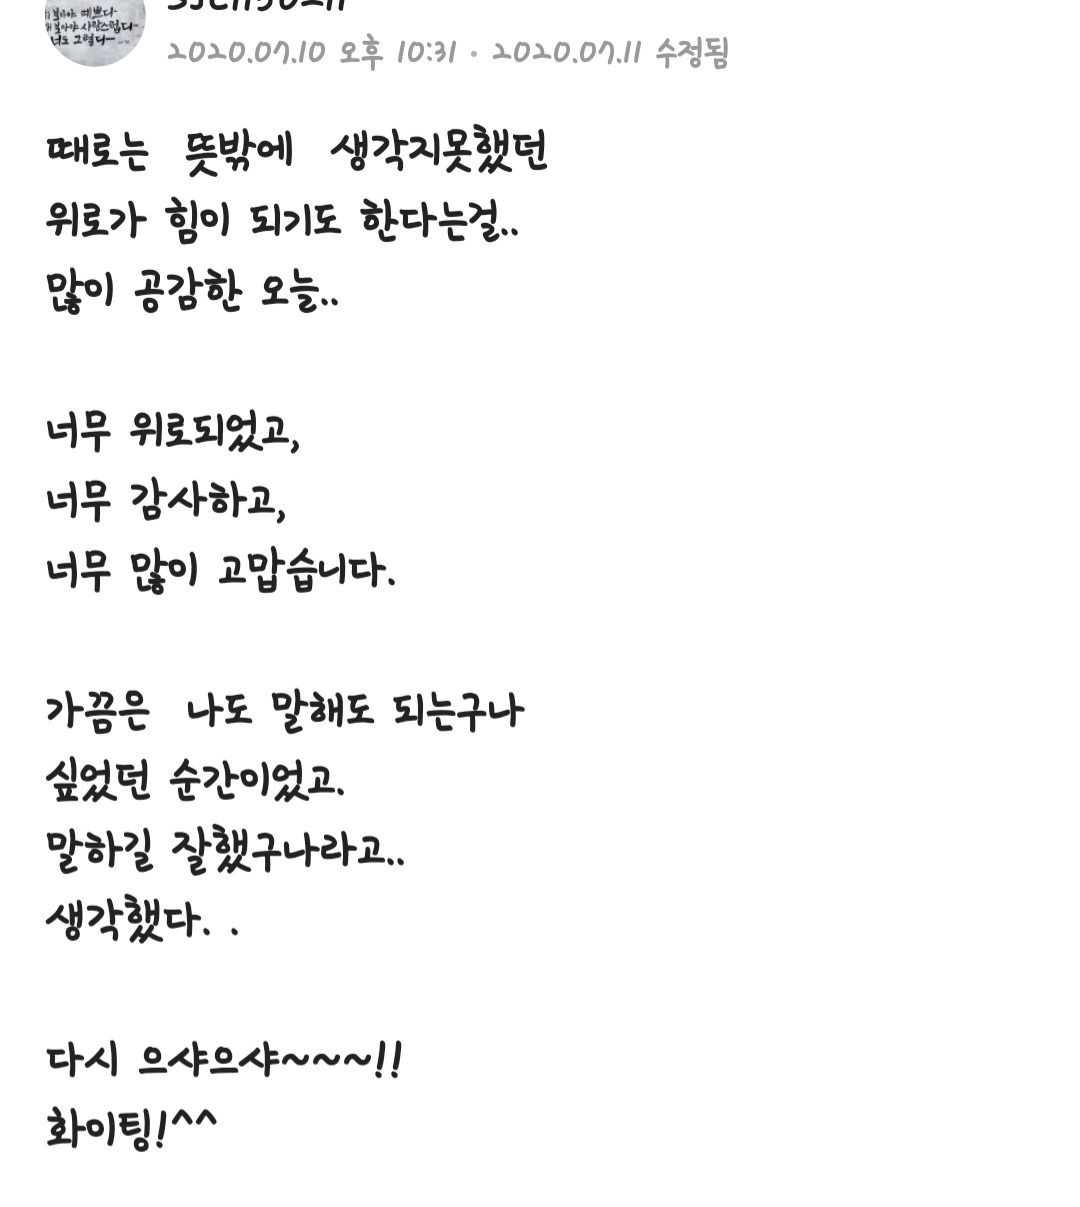 보아야 예쁘다
보아야 사랑스럽다
너도 그렇다
2020.07.10 오후 10:31 · 2020.07.11 수정됨
때로는 뜻밖에 생각지못했던
위로가 힘이 되기도 한다는걸..
많이 공감한 오늘..
너무 위로되었고,
너무 감사하고,
너무 많이 고맙습니다.
가끔은 나도 말해도 되는구나
싶었던 순간이었고.
말하길 잘했구나라고..
생각했다. .
다시 으샤으샤~~~!!
화이팅!^^